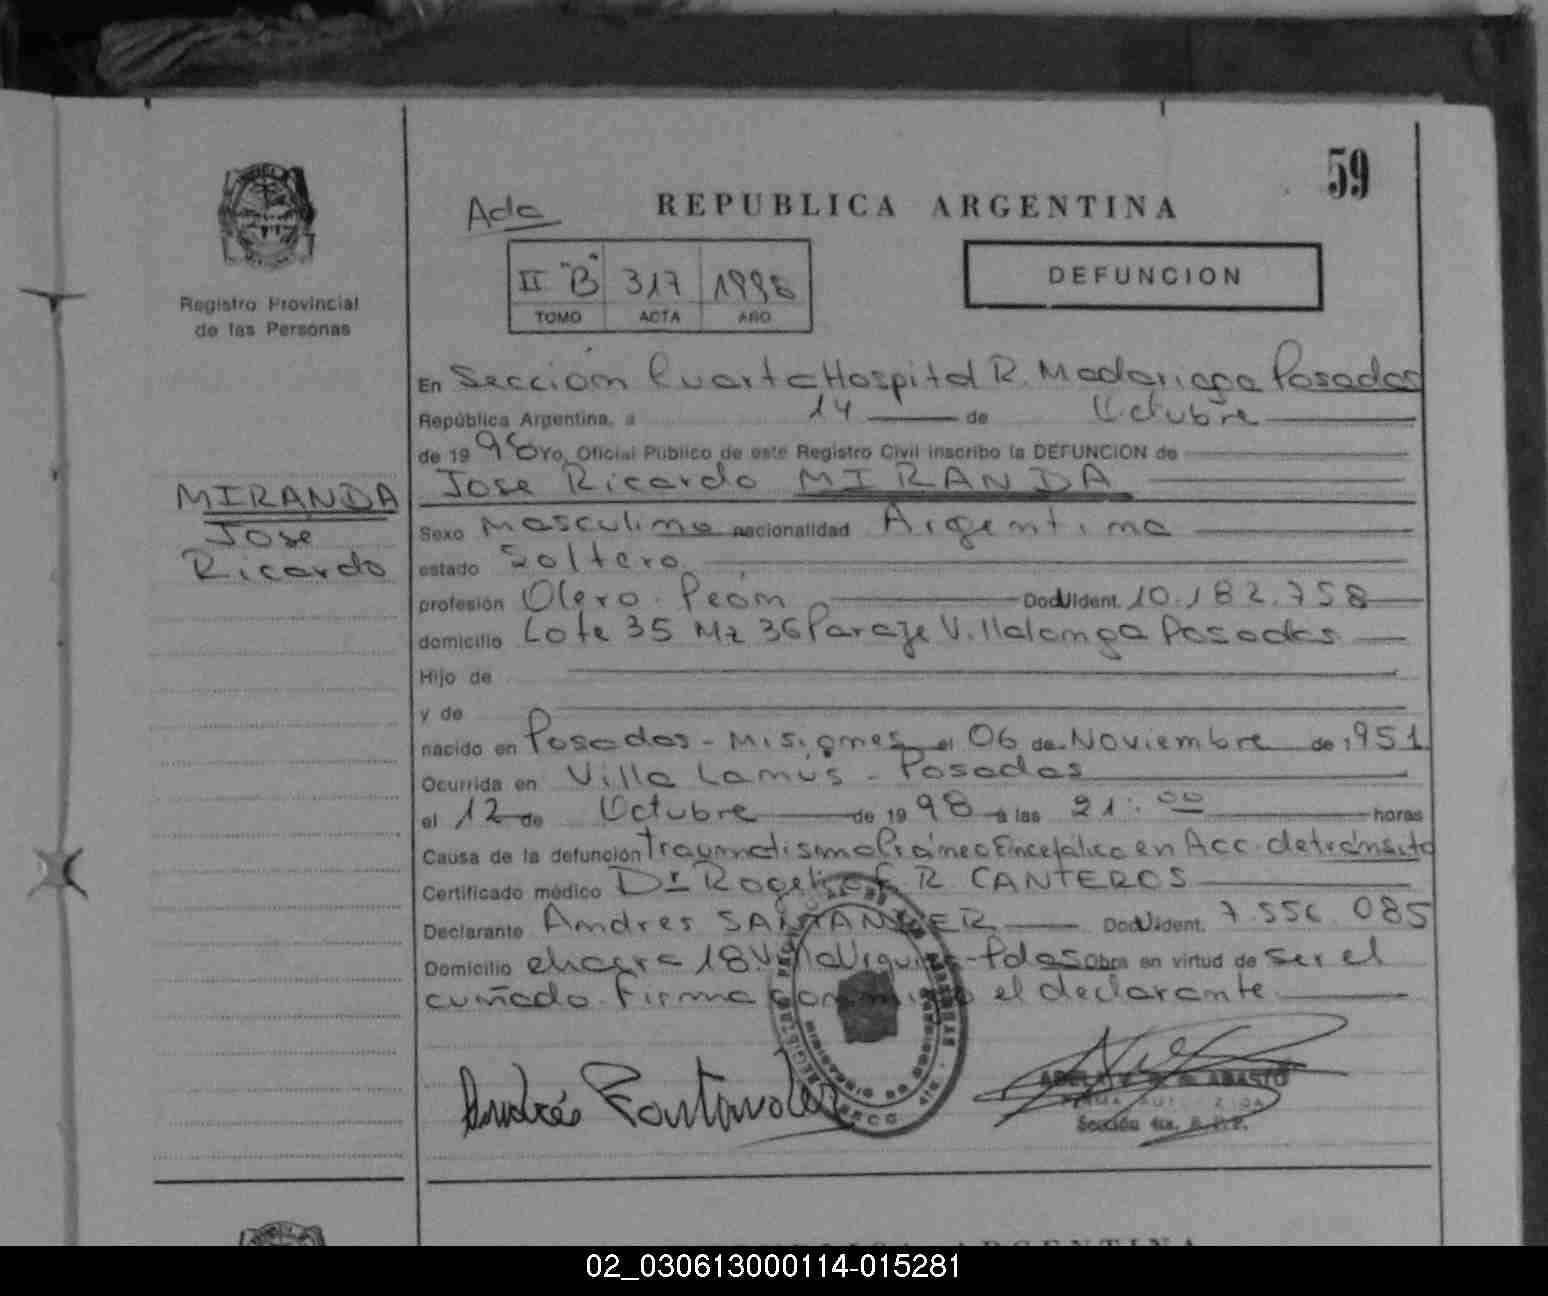 59
Ada
REPUBLICA ARGENTINA
II "B" 317 1998
TOMO ACTA AÑO
DEFUNCION
Registro Provincial
de las Personas
En Sección Cuarta Hospital R. Madariaga Posadas
República Argentina, a 14 de Octubre
de 1998 Yo, Oficial Público de este Registro Civil inscribo la DEFUNCION de
Jose Ricardo MIRANDA
MIRANDA
Jose
Ricardo
Sexo Masculino nacionalidad Argentina
estado Soltero
profesión Olero. Peón Doc. Ident. 10.182.758
domicilio Lote 35 Mz 36 Paraje Villalonga Posadas
Hijo de
y de
nacido en Posadas - Misiones el 06 de Noviembre de 1951
Ocurrida en Villa Lanús - Posadas
el 12 de Octubre de 1998 a las 21:00 horas
Causa de la defunción Traumatismo Cráneo Encefálico en Acc. de tránsito
Certificado médico Dr Rogelio R. CANTEROS
Declarante Andres SANTANDER Doc. Ident. 7.556.085
Domicilio chacra 18 Villa Urquiza - Pdas Obra en virtud de ser el
cuñado. Firma conmigo el declarante.
Sección 4ta. R.P.P.
REPUBLICA ARGENTINA
02_030613000114-015281